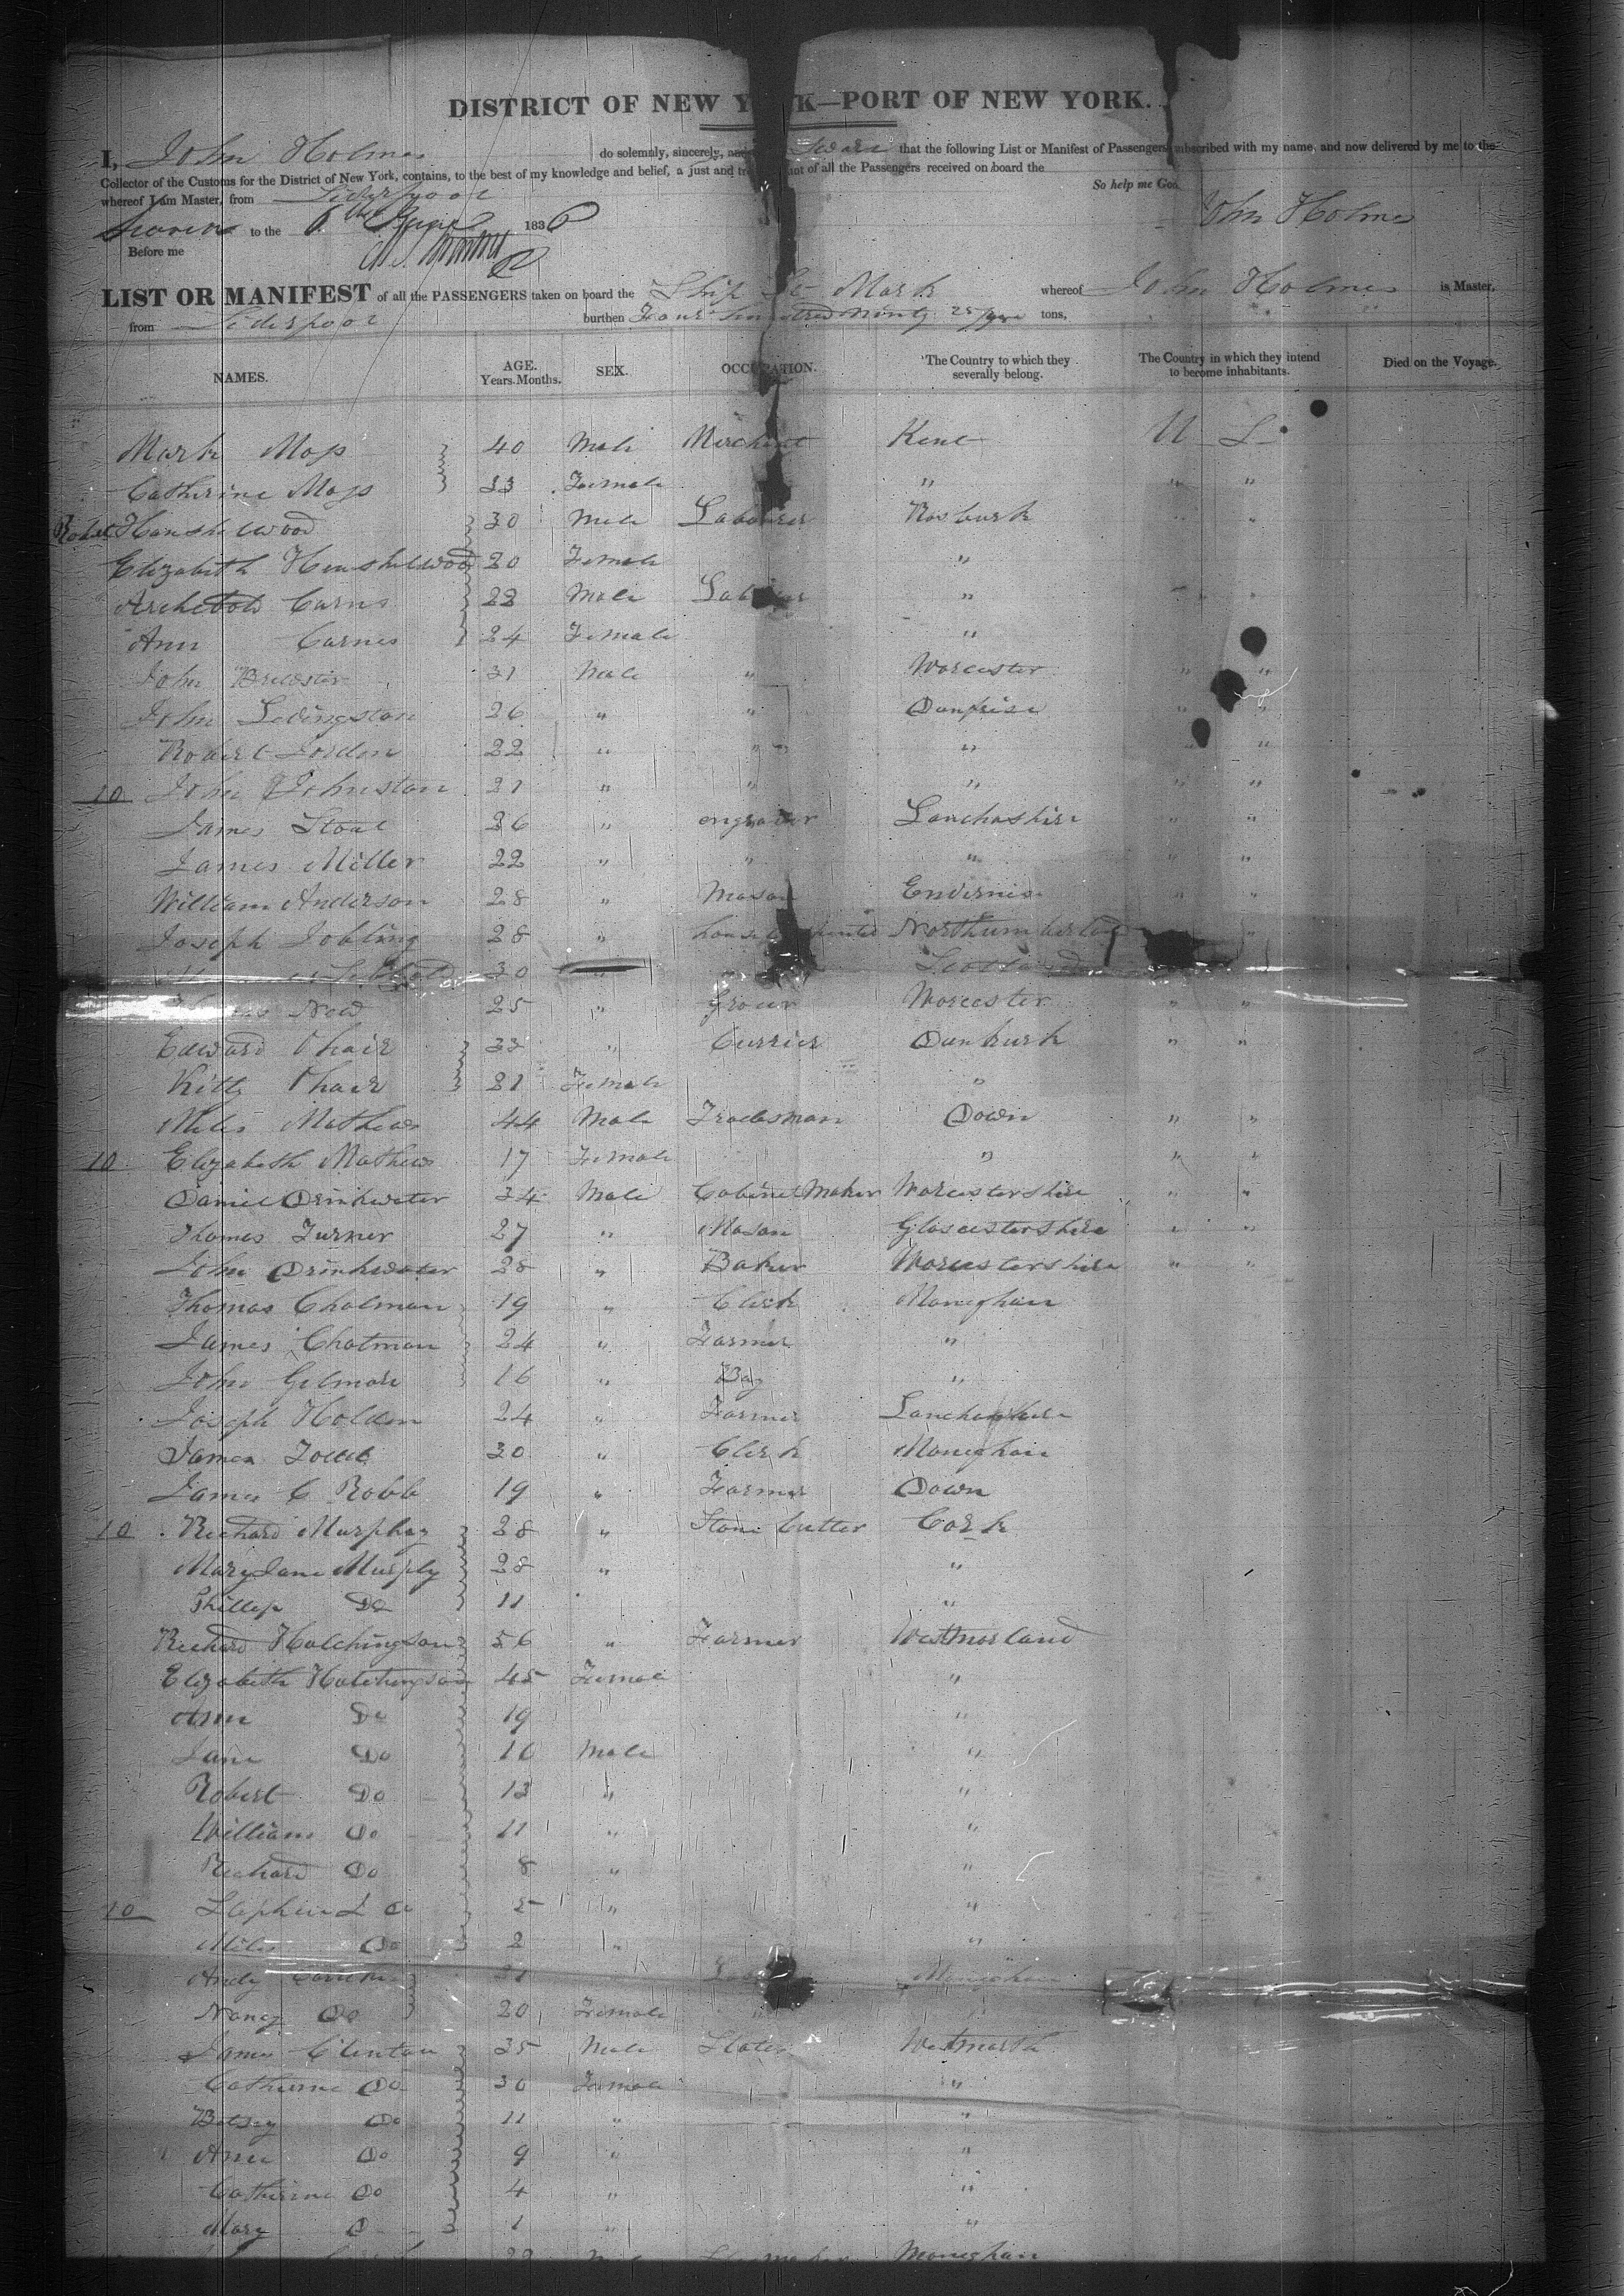 DISTRICT OF NEW YORK—PORT OF NEW YORK.
I, John Holmes do solemnly, sincerely, and Swear that the following List or Manifest of Passengers subscribed with my name, and now delivered by me to the
Collector of the Customs for the District of New York, contains, to the best of my knowledge and belief, a just and true account of all the Passengers received on board the
whereof I am Master, from Liverpool So help me God.
Sworn to the 6th June 1836 John Holmes
Before me
LIST OR MANIFEST of all the PASSENGERS taken on board the Ship St Mark whereof John Holmes is Master,
from Liverpool burthen Four hundred Ninty tons,
NAMES. AGE. Years. Months. SEX. OCCUPATION. The Country to which they severally belong. The Country in which they intend to become inhabitants. Died on the Voyage.
Mark Moss 40 Male Merchant Kent U S
Catherine Moss 33 Female " " "
Robet Hanshelwood 30 Male Labourer Rosburk "
Elizabeth Henshelwood 20 Female "
Archebold Carns 22 Male Labourer "
Ann Carnes 24 Female "
John Brewster 31 Male " Worcester " "
John Levingston 26 " " Dunfrise " "
Robert Jorden 22 " " " " "
10 John Johnston 21 " " " " "
James Stout 26 " engraver Lanchashire " "
James Miller 22 " " " " "
William Anderson 28 " Mason Enverniss " "
Joseph Jobling 28 " house Northumberland "
30 " Scotland
New 25 " Grocer Worcester " "
Edward Phair 33 " Currier Dunkurk " "
Kitty Phair 21 Female "
Miles Mathews 44 Male Tradesman Down " "
10 Elizabeth Mathews 17 Female " " "
Daniel Drinkwater 34 Male Cabinet Maker Worcestershire " "
Thomas Turner 27 " Mason Gloscestershire " "
John Drinkwater 28 " Baker Worcestershire " "
Thomas Chatman 19 " Clerk Moneghan
James Chatman 24 " Farmer "
John Gilmore 16 " Boy "
Joseph Holden 24 " Farmer Lanchashire
James 30 " Clerk Moneghan
James C Robb 19 " Farmer Down
10 Richard Murphey 28 " Stone Cutter Cork
Mary Jane Murphy 28 " "
Phillip Do 11 "
Richard Hutchingson 56 " Farmer Westmorland
Elizabeth Hutchingson 45 Female "
Ann Do 19 "
Jane Do 16 Male "
Robert Do 13 " "
William Do 11 " "
Richard Do 8 " "
10 Stephen Do 5 " "
Miles Do 2 " "
Andy 31 Moneghan
Nancy Do 20 Female "
James Clinton 35 Male Slater Westmeath
Catherine Do 30 Female "
Betsey Do 11 " "
Ann Do 9 " "
Catherine Do 4 " "
Mary D 1 " "
22 Moneghan